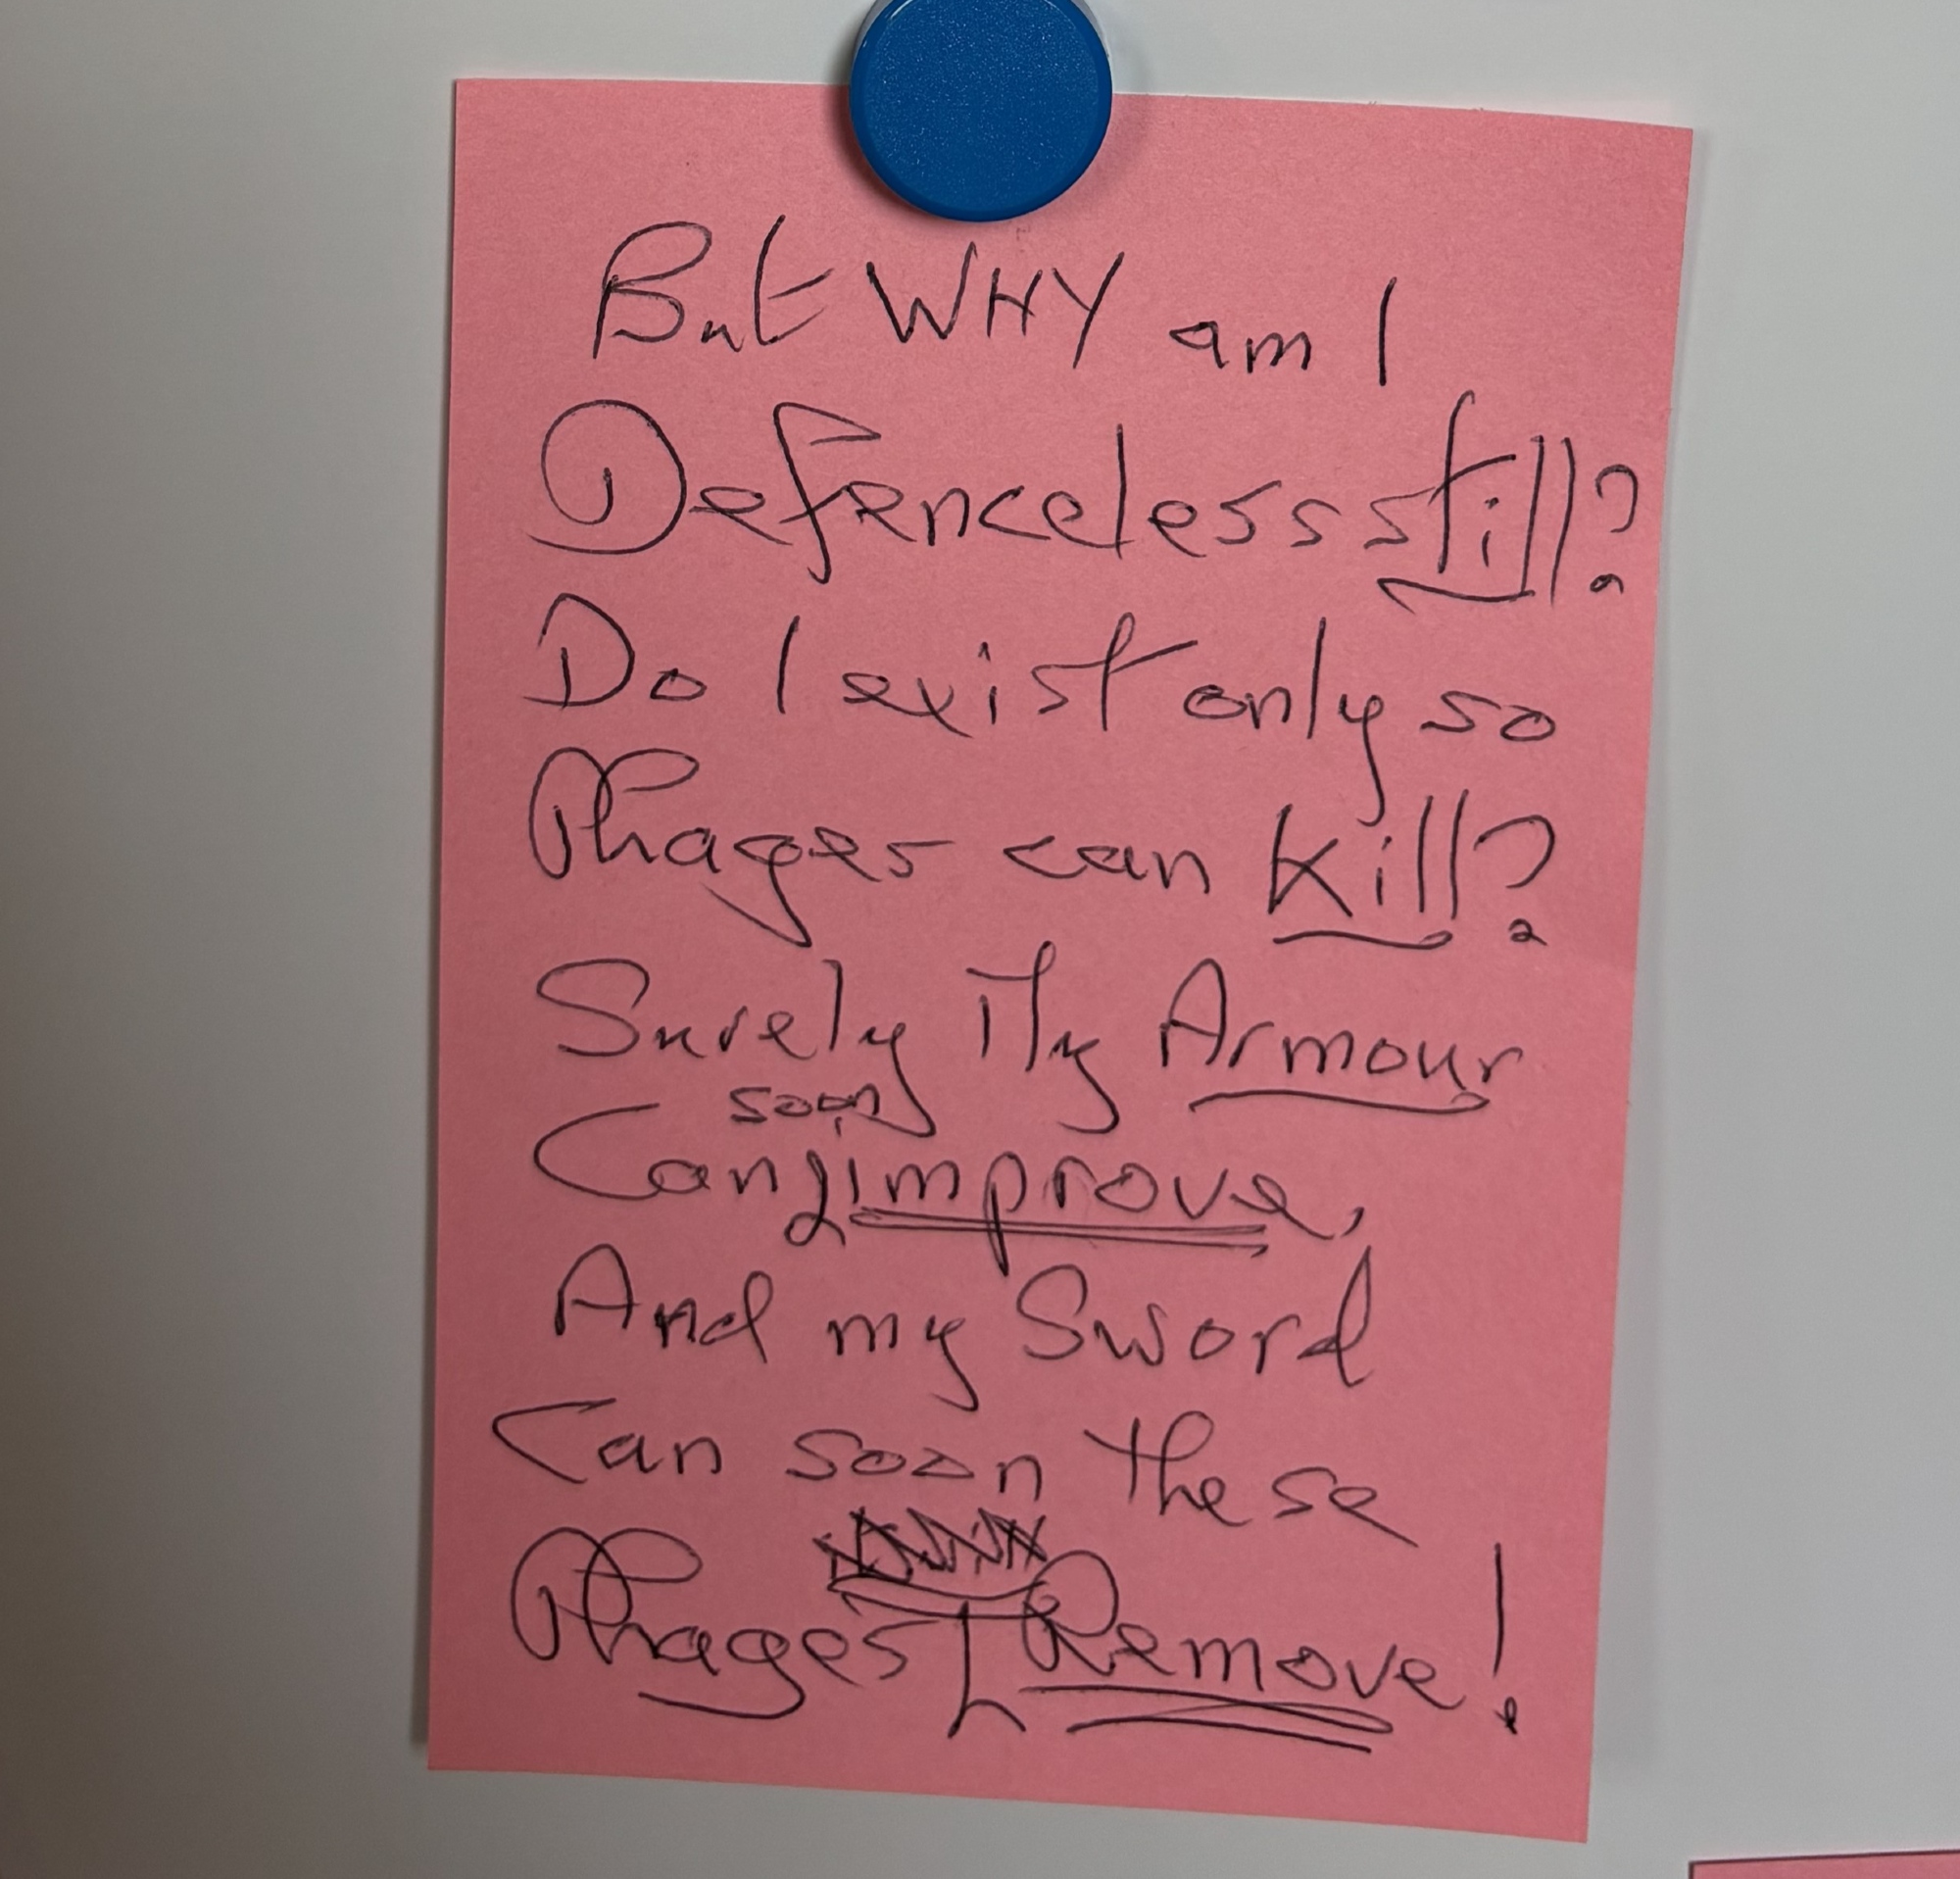 But WHY am I
Defenceless still?
Do I exist only so
Phages can Kill?
Surely My Armour
Can soon improve,
And my Sword
Can soon these
Phages Remove!